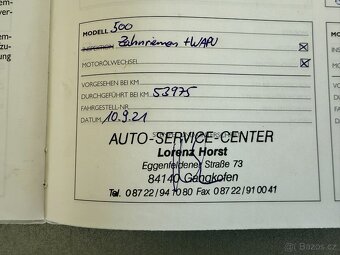 MODELL 500
INSPEKTION Zahnriemen + WAPU
MOTORÖLWECHSEL
VORGESEHEN BEI KM
DURCHGEFÜHRT BEI KM 53975
FAHRGESTELL-NR.
DATUM 10.9.21
AUTO-SERVICE-CENTER
Lorenz Horst
Eggenfeldener Straße 73
84140 Gangkofen
Tel. 0 87 22 / 94 10 80 Fax 0 87 22 / 91 00 41